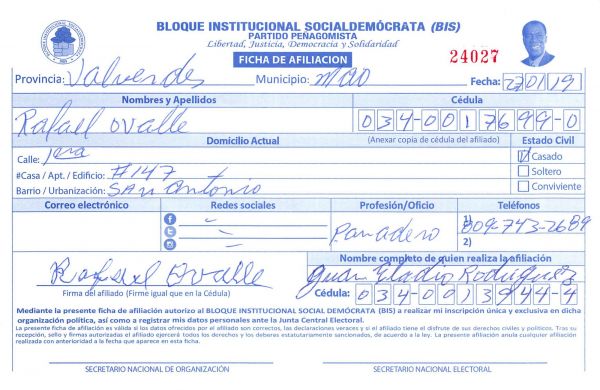 BLOQUE INSTITUCIONAL SOCIALDEMÓCRATA (BIS)
PARTIDO PEÑAGOMISTA
Libertad, Justicia, Democracia y Solidaridad
FICHA DE AFILIACION
24027
Provincia: Valverdes Municipio: mao Fecha: 27/01/19
Nombres y Apellidos Cédula
Rafael Ovalle 034-0017699-0
Domicilio Actual (Anexar copia de cédula del afiliado) Estado Civil
Calle: 1era Casado
#Casa / Apt. / Edificio: #147 Soltero
Barrio / Urbanización: San Antonio Conviviente
Correo electrónico Redes sociales Profesión/Oficio Teléfonos
Panadero 1) 809-743-2689
2)
Nombre completo de quien realiza la afiliación
Rafael Ovalle Juan Eladio Rodriguez
Firma del afiliado (Firme igual que en la Cédula) Cédula: 034-0013944-4
Mediante la presente ficha de afiliación autorizo al BLOQUE INSTITUCIONAL SOCIAL DEMÓCRATA (BIS) a realizar mi inscripción única y exclusiva en dicha
organización política, así como a registrar mis datos personales ante la Junta Central Electoral.
La presente ficha de afiliación es válida si los datos ofrecidos por el afiliado son correctos, las declaraciones veraces y si el afiliado tiene el disfrute de sus derechos civiles y políticos. Tras su
recepción, sello y firmas autorizadas el afiliado ejercerá todos los derechos y los deberes estatutariamente sancionados, de acuerdo a la ley. La presente afiliación anula cualquier afiliación
realizada con anterioridad a la fecha que aparece en esta ficha.
SECRETARIO NACIONAL DE ORGANIZACIÓN SECRETARIO NACIONAL ELECTORAL